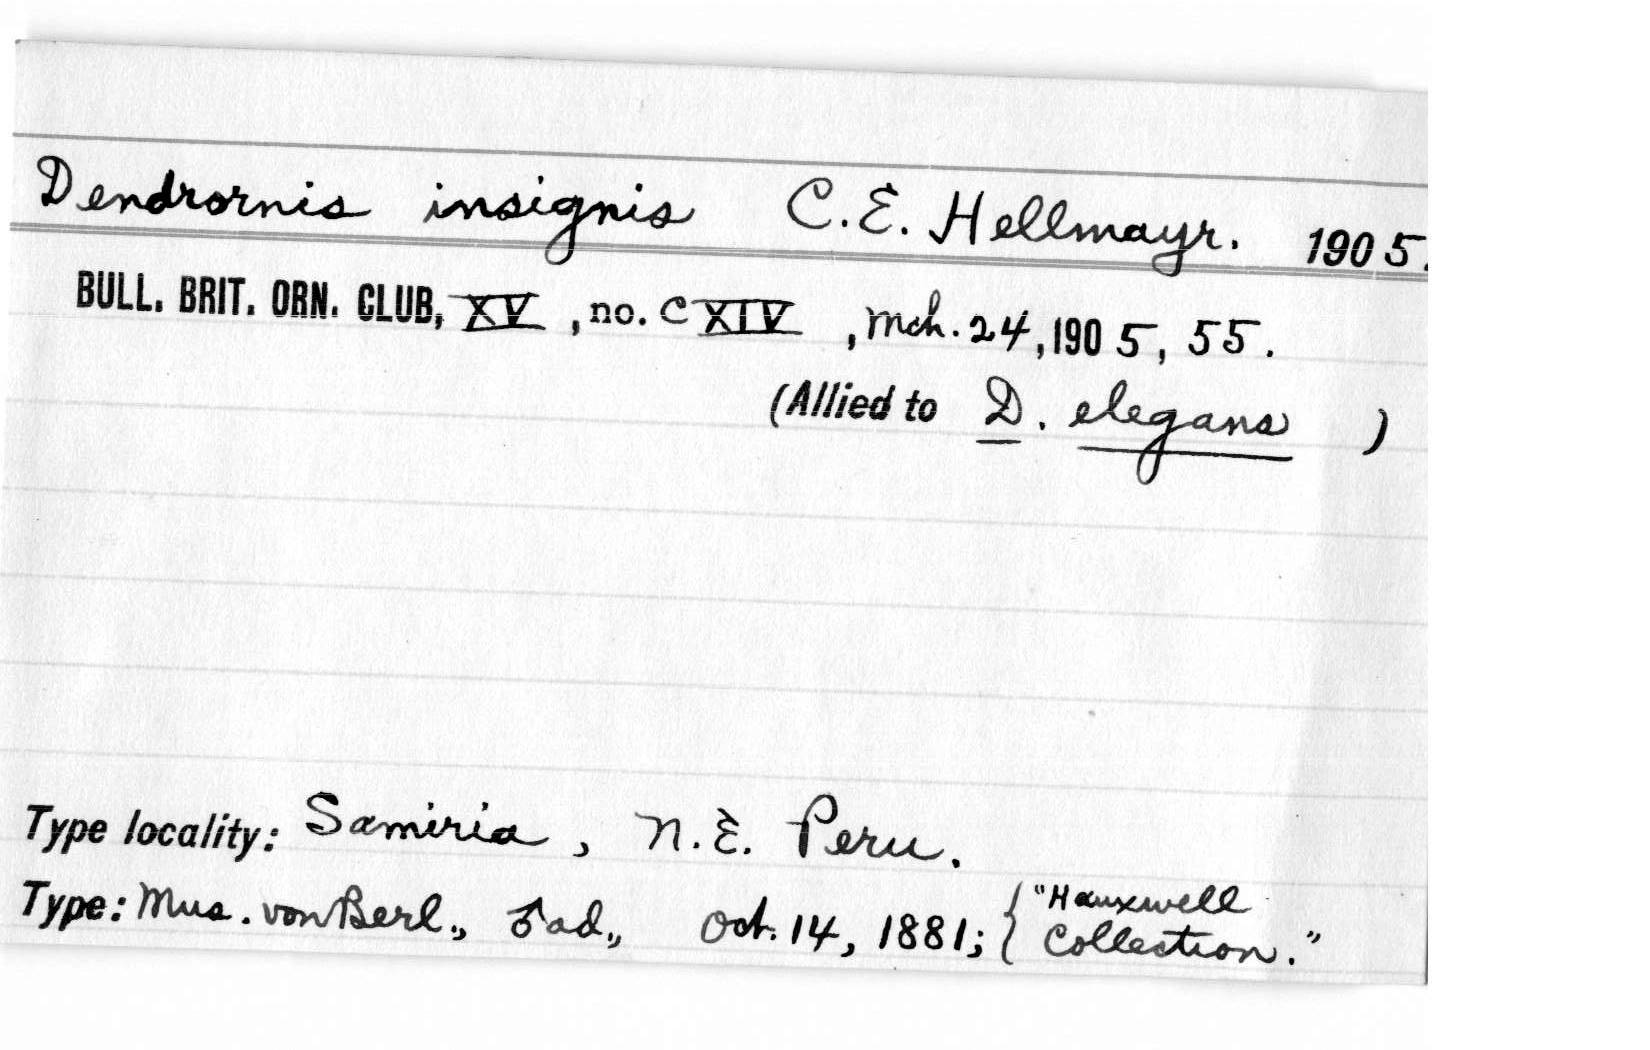 Dendrornis insignis C. E. Hellmayr. 1905.
BULL. BRIT. ORN. CLUB, XV, no. CXIV, Mch. 24, 1905, 55.
(Allied to D. elegans )
Type locality: Samiria, N.E. Peru.
Type: Mus. von Berl., ♂ ad., Oct. 14, 1881; { "Hauxwell
Collection."